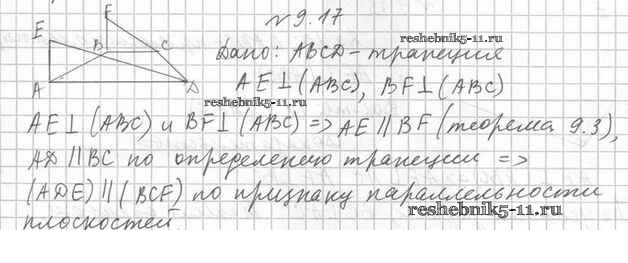 № 9.17
F
E
B
C
A
D
reshebnik5-11.ru
Дано: ABCD - трапеция
AE⊥(ABC), BF⊥(ABC)
reshebnik5-11.ru
AE⊥(ABC) и BF⊥(ABC) => AE∥BF (теорема 9.3),
AD∥BC по определению трапеции =>
(ADE)∥(BCF) по признаку параллельности
плоскостей
reshebnik5-11.ru